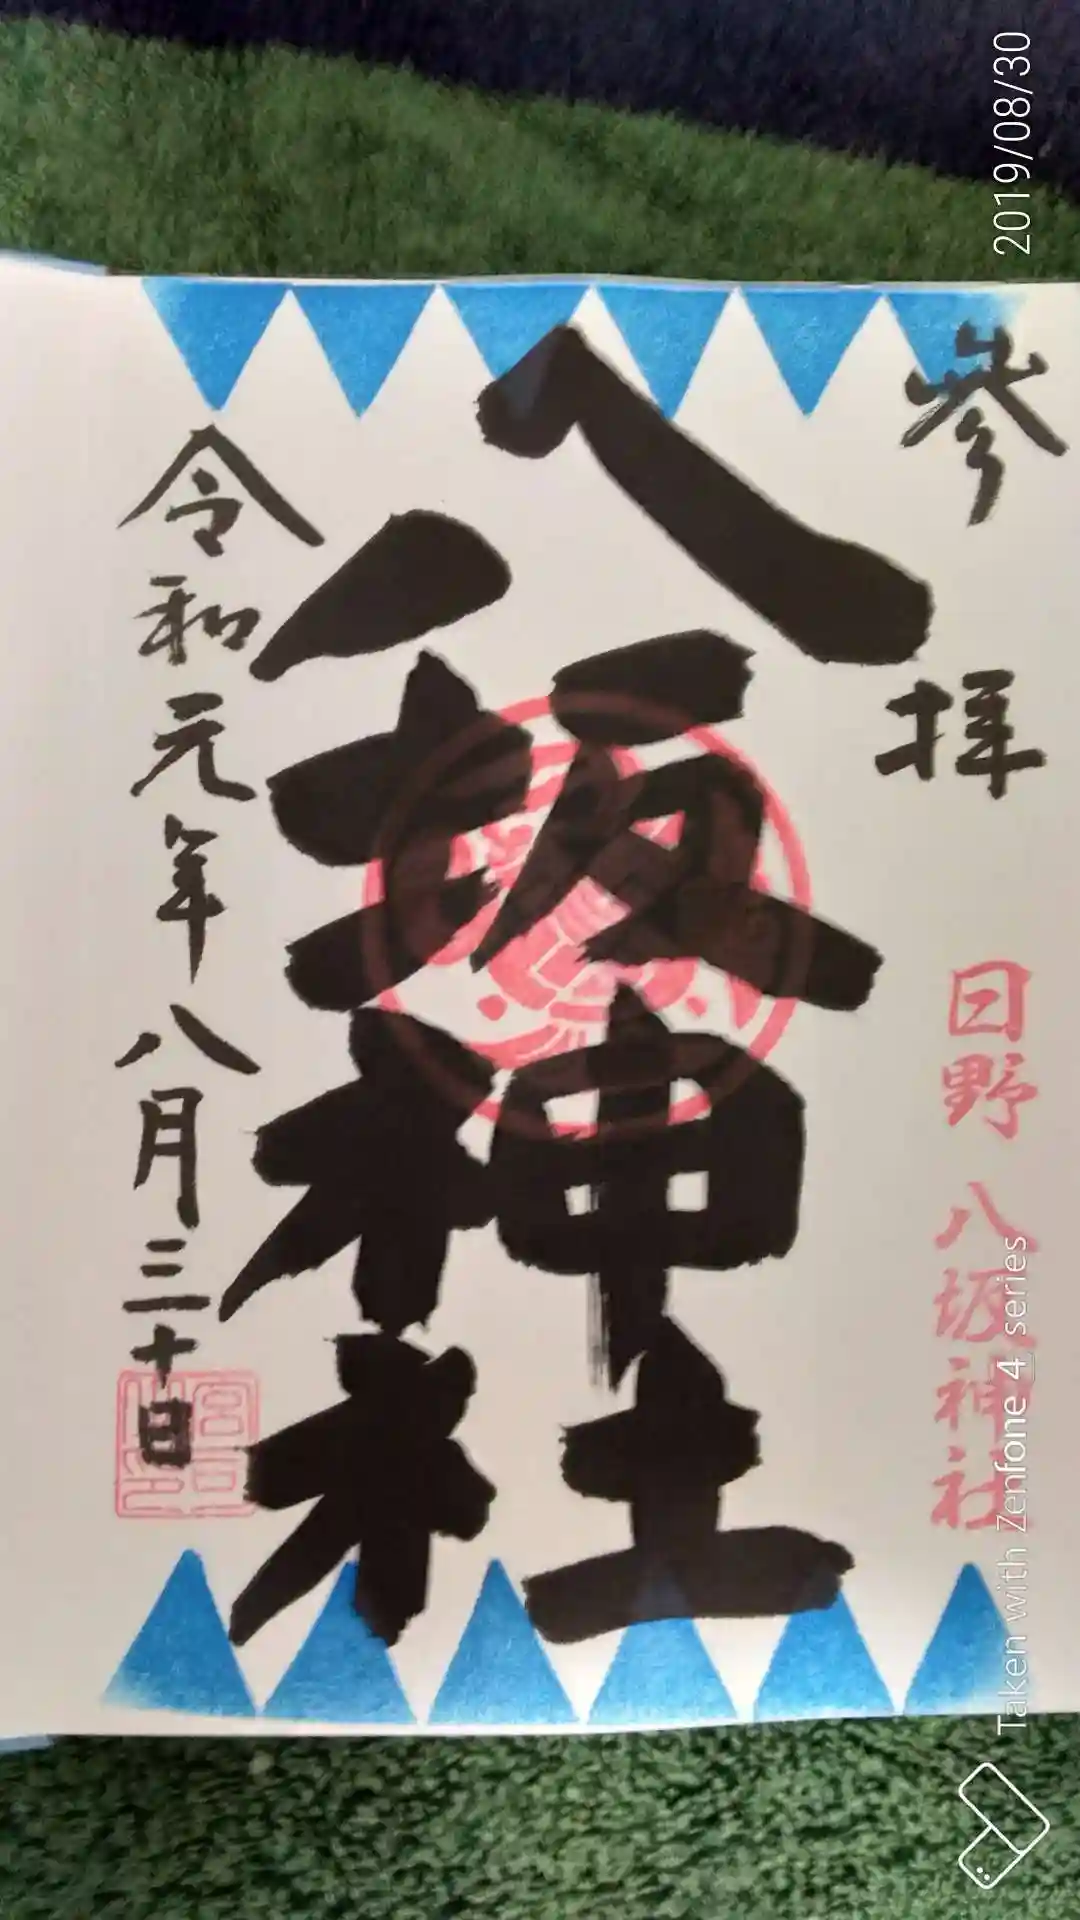 参拝
日野 八坂神社
八坂神社
令和元年八月三十日
2019/08/30
Taken with Zenfone 4 series